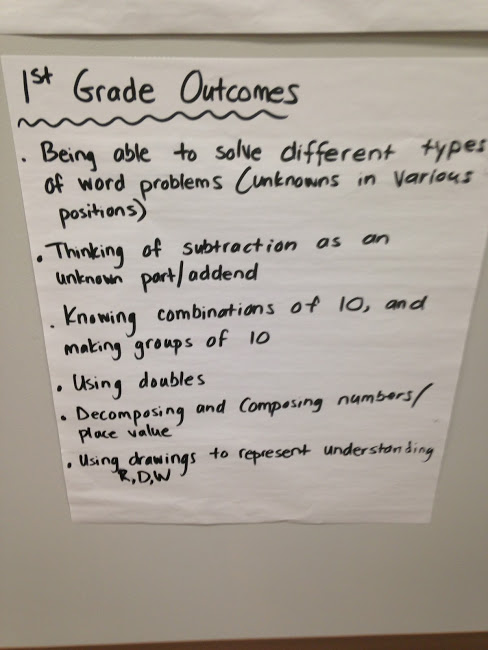 1st Grade Outcomes
. Being able to solve different types
of word problems (unknowns in various
positions)
. Thinking of subtraction as an
unknown part/addend
. Knowing combinations of 10, and
making groups of 10
. Using doubles
. Decomposing and Composing numbers/
place value
. Using drawings to represent understanding
R,D,W